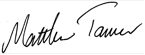 Matthew Tanner